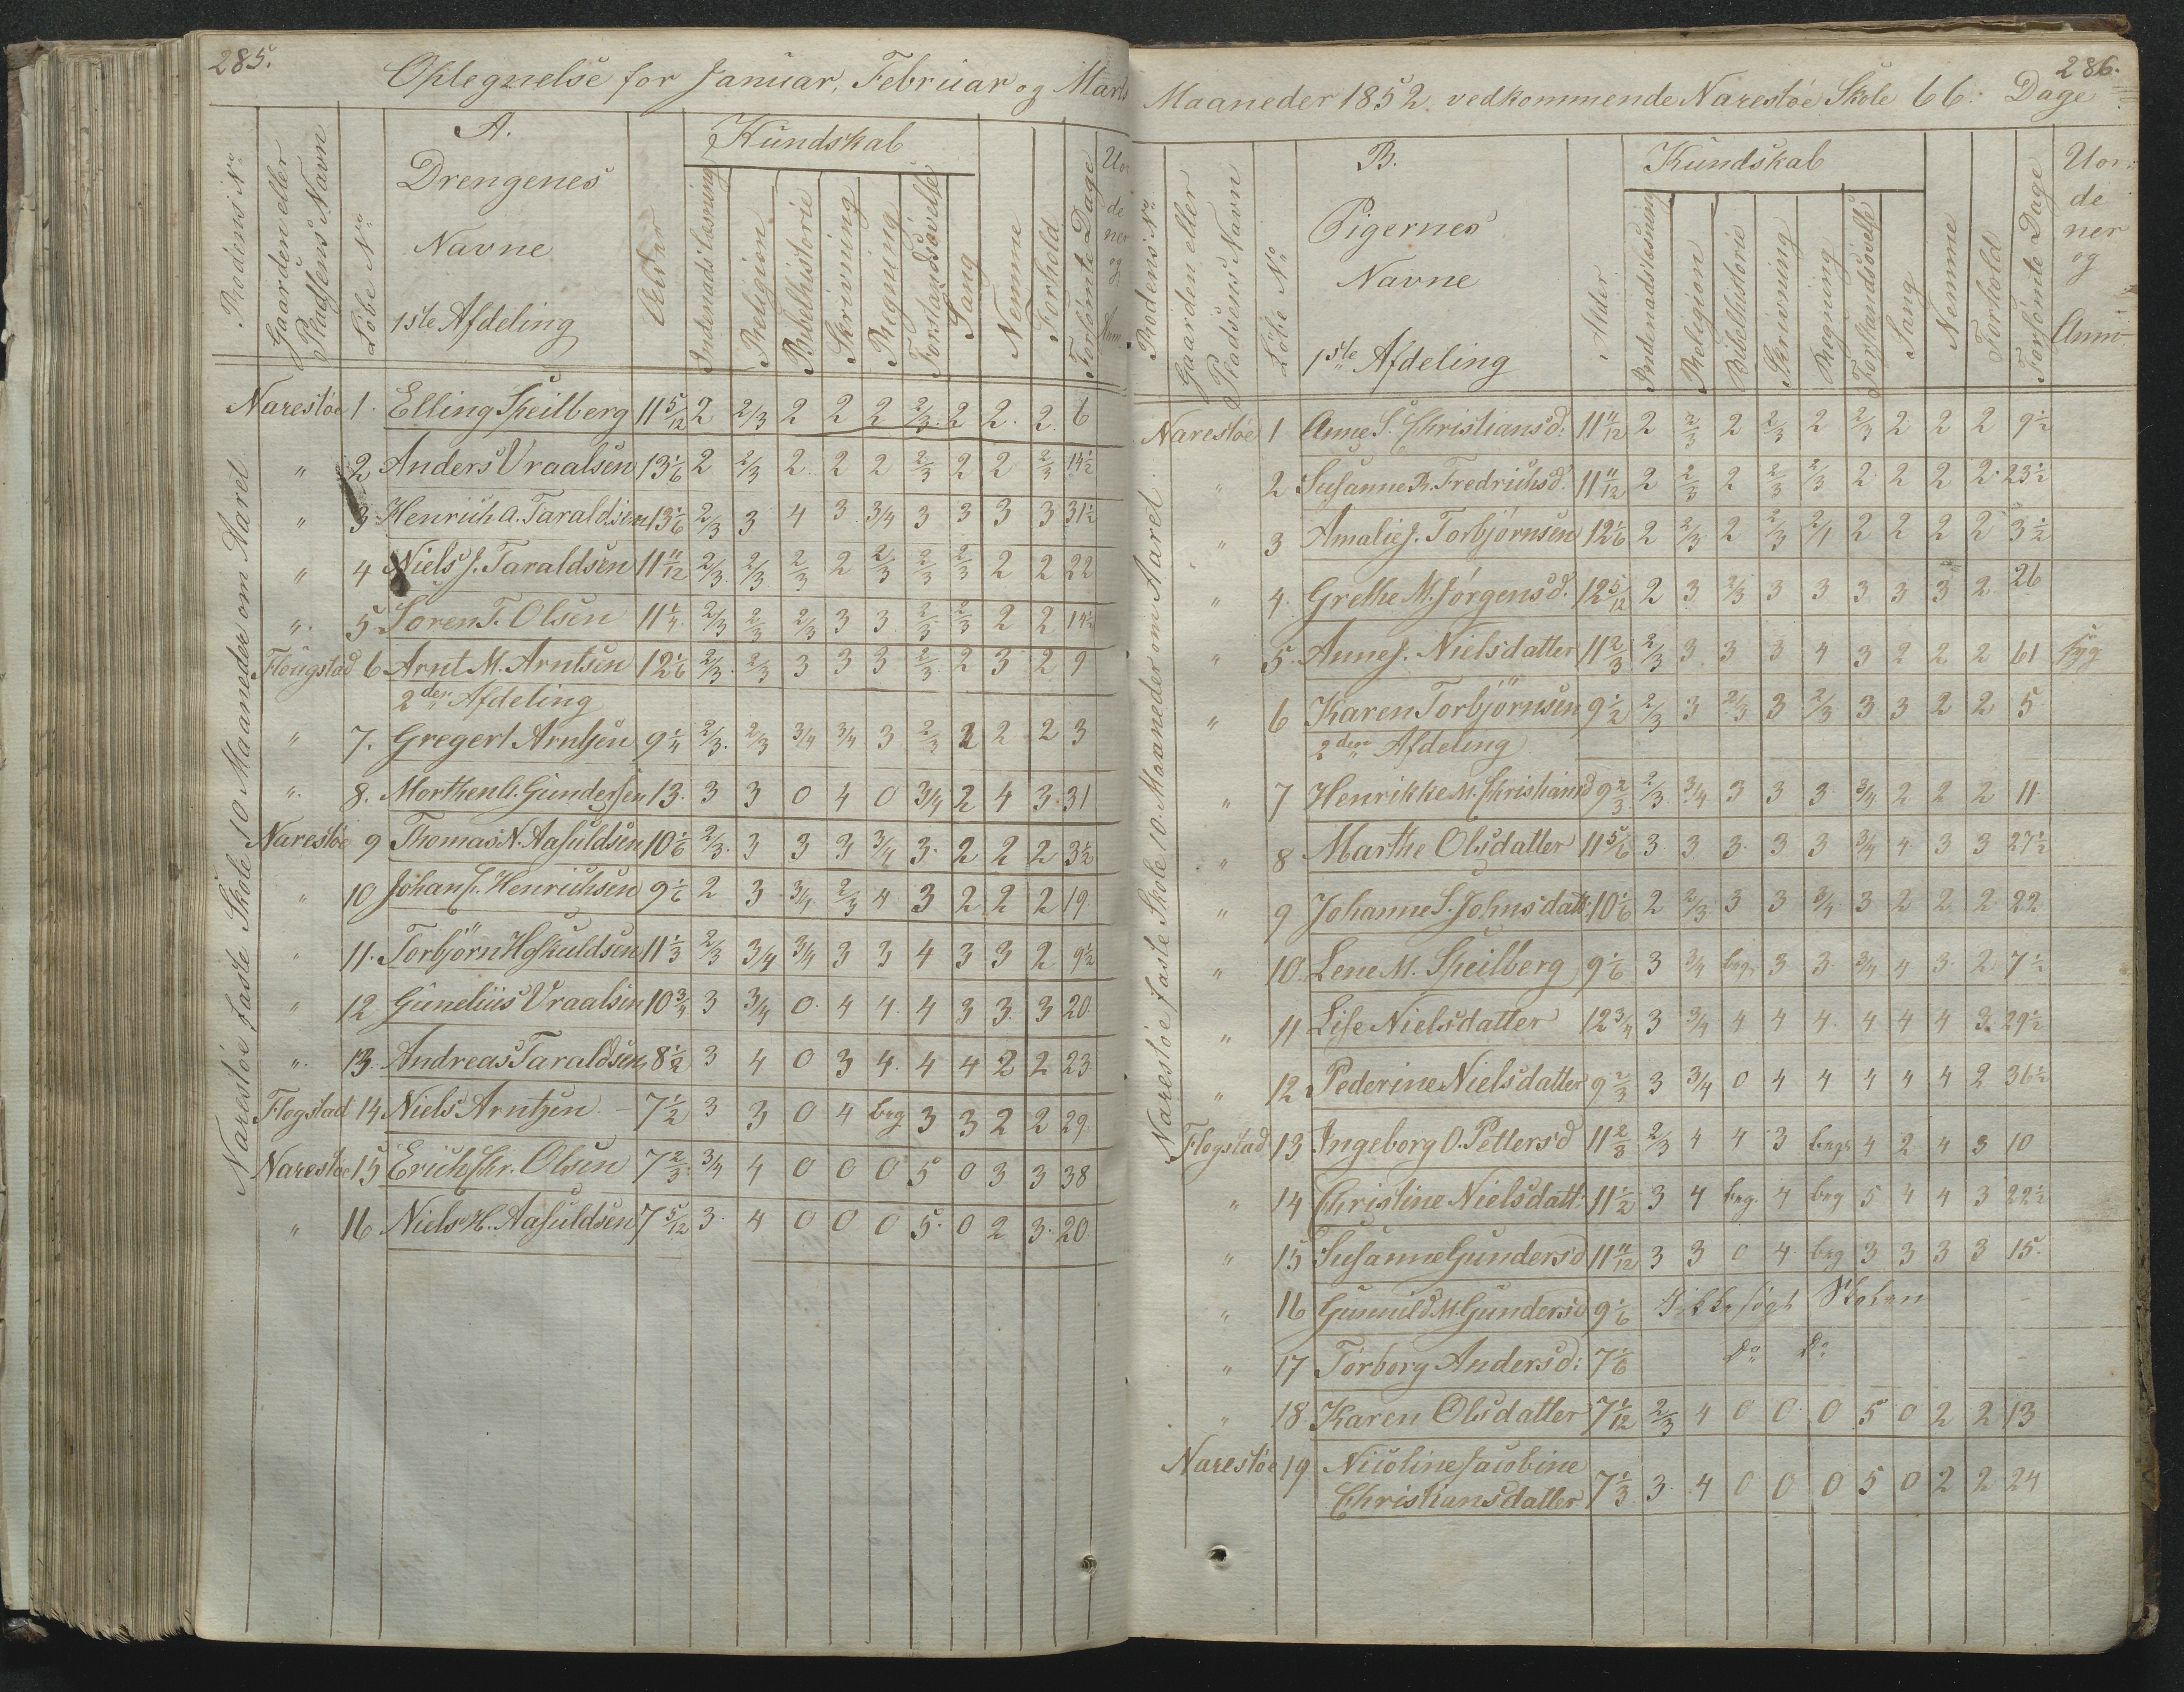 285.
Optegnelse for Januar, Februar og Marts
Rodens No
Gaarden eller Pladsens Navn
Løbe No
A.
Drengenes
Navne
1ste Afdeling
Alder
Kundskab
Indenadslæsning
Religion
Bibelhistorie
Skrivning
Regning
Forstandsøvelse
Sang
Nemme
Forhold
Forsømte Dage
Uor
de
ner
og
Anm
Narestøe faste Skole 10 Maaneder om Aaret
Narestøe 1. Elling Speilberg 11 5/12 2 2/3 2 2 2 2/3. 2 2. 2. 6
" 2 Anders Vraalsen 13 1/6 2 2/3 2. 2 2 2/3 2 2 2/3 14 1/2
" 3. Henrich A. Taraldsen 13 1/6 2/3 3 4 3. 3/4 3 3 3 3 31 1/2
" 4 Niels J. Taraldsen 11 11/12 2/3. 2/3 2/3 2 2/3 2/3 2/3 2 2 22
". 5 Søren T. Olsen 11 1/4. 2/3 2/3 2/3 3 3 2/3 2/3 2 2 14 1/2
Flougstad 6 Arnt M. Arntsen 12 1/6 2/3. 2/3 3 3 3 2/3. 2 3 2 9
2den Afdeling
" 7. Gregert Arntsen 9 1/4 2/3. 2/3 3/4 3/4 3 2/3 2 2 2 3
". 8. Morthen G. Gundersen 13. 3 3 0 4 0 3/4 2 4 3. 31
Narestøe 9 Thomas N. Aasuldsen 10 1/6 2/3. 3 3 3 3/4 3. 2 2 2 3 1/2
" 10 Johan J. Henrichsen 9 1/6 2 3 3/4 2/3 4 3 2 2 2 19.
" 11. Torbjörn Hoskuldsen 11 1/3 2/3 3/4 3/4 3 3 4 3 3 2 9 1/2
" 12 Gunelius Vraalsen 10 3/4 3 3/4 0. 4 4. 4 3 3. 3 20
". 13. Andreas Taraldsen 8 1/2 3 4 0 3 4. 4 4 2 2 23
Flogstad 14 Niels Arntzen 7 1/2 3 3 0 4 beg 3 3 2 2 29
Narestøe 15 Erich Chr. Olsen 7 2/3. 3/4 4 0 0 0 5 0 3 3 38
" 16 Niels H. Aasuldsen 7 5/12 3. 4 0 0 0 5. 0 2 3. 20
286.
Maaneder 1852. vedkommende Narestøe Skole 66. Dage
Rodens No
Gaarden eller Pladsens Navn
Løbe No
B.
Pigernes
Navne
1ste Afdeling
Alder
Kundskab
Indenadslæsning
Religion
Bibelhistorie
Skrivning
Regning
Forstandsøvelse
Sang
Nemme
Forhold
Forsømte Dage
Uor:
de
ner
og
Anm
Narestøe faste Skole 10. Maaneder om Aaret
Narestøe 1 Anne S. Christiansd: 11 11/12 2 2/3 2 2/3 2 2/3 2 2 2 9 1/2
" 2 Susanne R. Fredrichsd. 11 11/12 2 2/3 2 2/3 2/3 2 2 2 2. 23 1/2
" 3 Amalie J. Torbjørnsen 12 1/6 2 2/3 2 2/3 2/1 2 2 2 2 3 1/2
" 4. Grethe M. Jørgensd. 12 5/12 2 3 2/3 3 3 3 3 3 2. 26
" 5. Anne J. Nielsdatter 11 2/3. 2/3 3. 3 3 4 3 2 2 2 61 syg
" 6 Karen Torbjörnsen 9 1/2 2/3 3 2/3 3 2/3 3 3 2 2 5
2den Afdeling
" 7 Henrikke M. Christiansd 9 2/3 2/3 3/4 3 3 3 3/4 2 2 2 11.
" 8 Marthe Olsdatter 11 5/6 3. 3. 3. 3 3 3/4 4 3 3 27 1/2
" 9 Johanne S. Johnsdatt: 10 1/6 2 2/3 3 3 3/4. 3 2 2 2 22
" 10. Lene M. Speilberg 9 1/6 3 3/4 beg. 3 3. 3/4 4 3. 2 7 1/2
" 11 Lise Nielsdatter 12 3/4 3 3/4 4 4 4. 4 4 4 3. 29 1/2
" 12 Pederine Nielsdatter 9 2/3 3 3/4 0 4 4 4 4 4 2 36 1/2
Flogstad 13 Ingeborg O. Pettersd 11 2/3 2/3 4 4 3 beg. 4 2 4 3 10
" 14 Christine Nielsdatt: 11 1/2 3 4 beg. 4 beg 5 4 4 3 22 1/2
" 15 Susanne Gundersd 11 11/12 3 3 0 4 beg 3 3 3 3 15.
" 16 Gunnild M. Gundersd 9 1/6 Ikke søgt Skolen
" 17 Torborg Andersd: 7 1/6 Do Do
" 18 Karen Olsdatter 7 1/12 2/3 4 0 0. 0 5 0 2 2 13
Narestøe 19 Nicoline Jacobine
Christiansdatter 7 1/3 3. 4 0 0 0 5 0 2 2 24